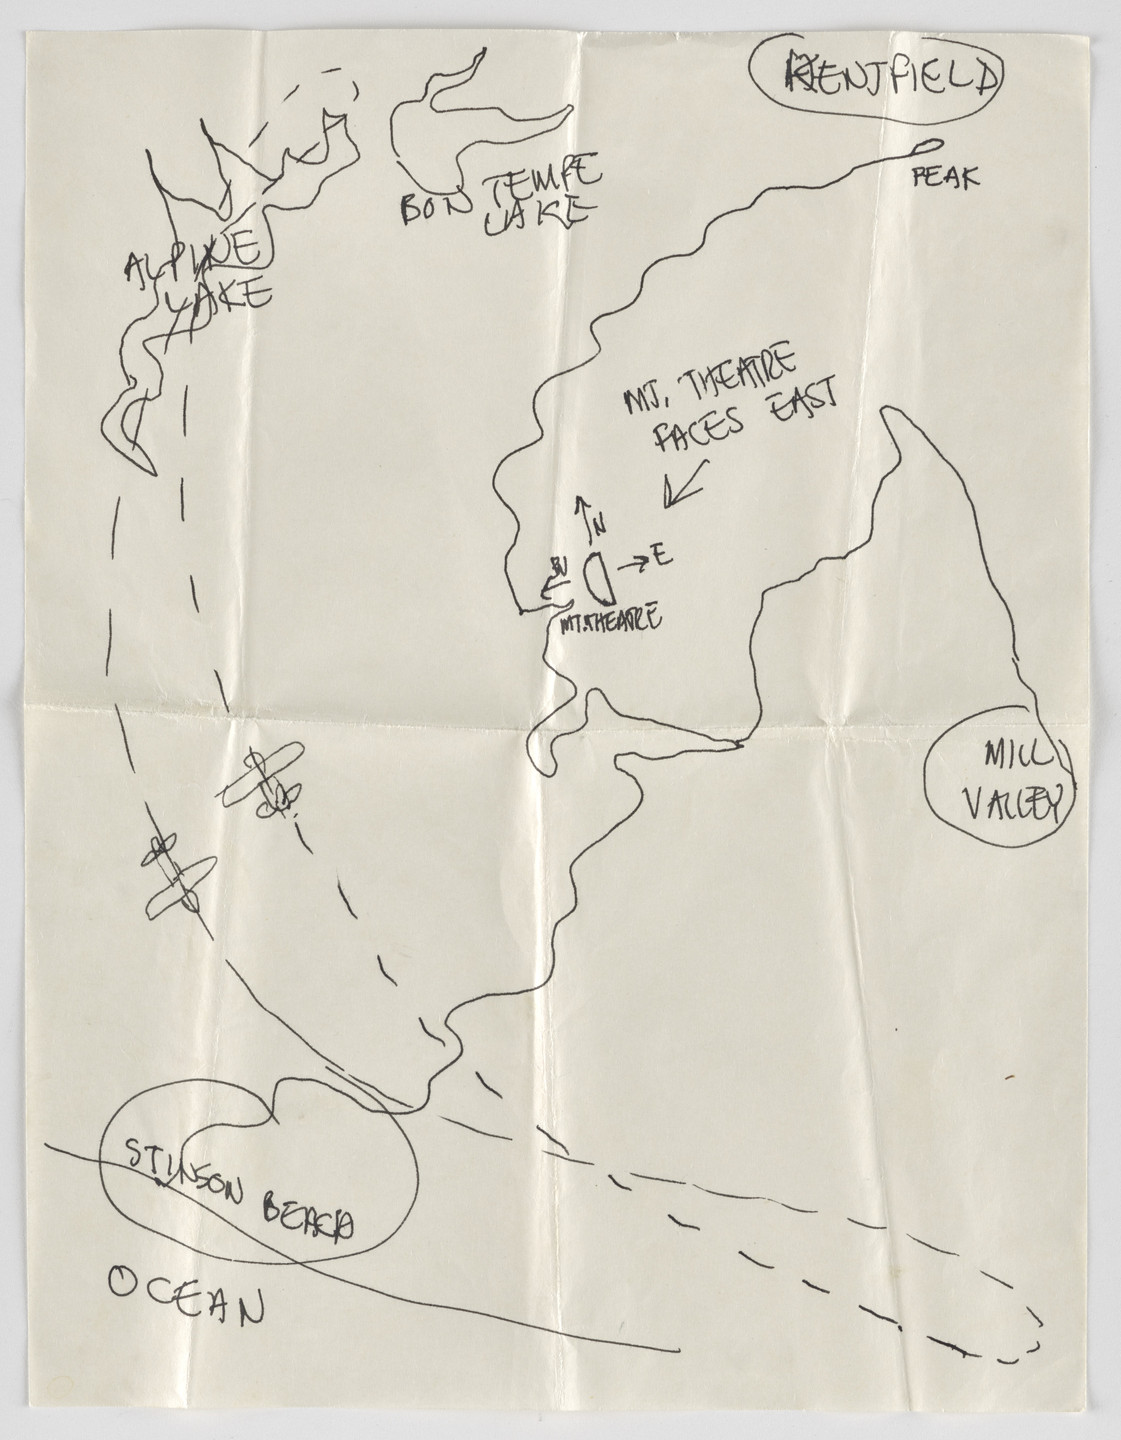 KENTFIELD
PEAK
BON TEMPE
LAKE
ALPINE
LAKE
MT. THEATRE
FACES EAST
N
E
MT. THEATRE
MILL
VALLEY
STINSON BEACH
OCEAN